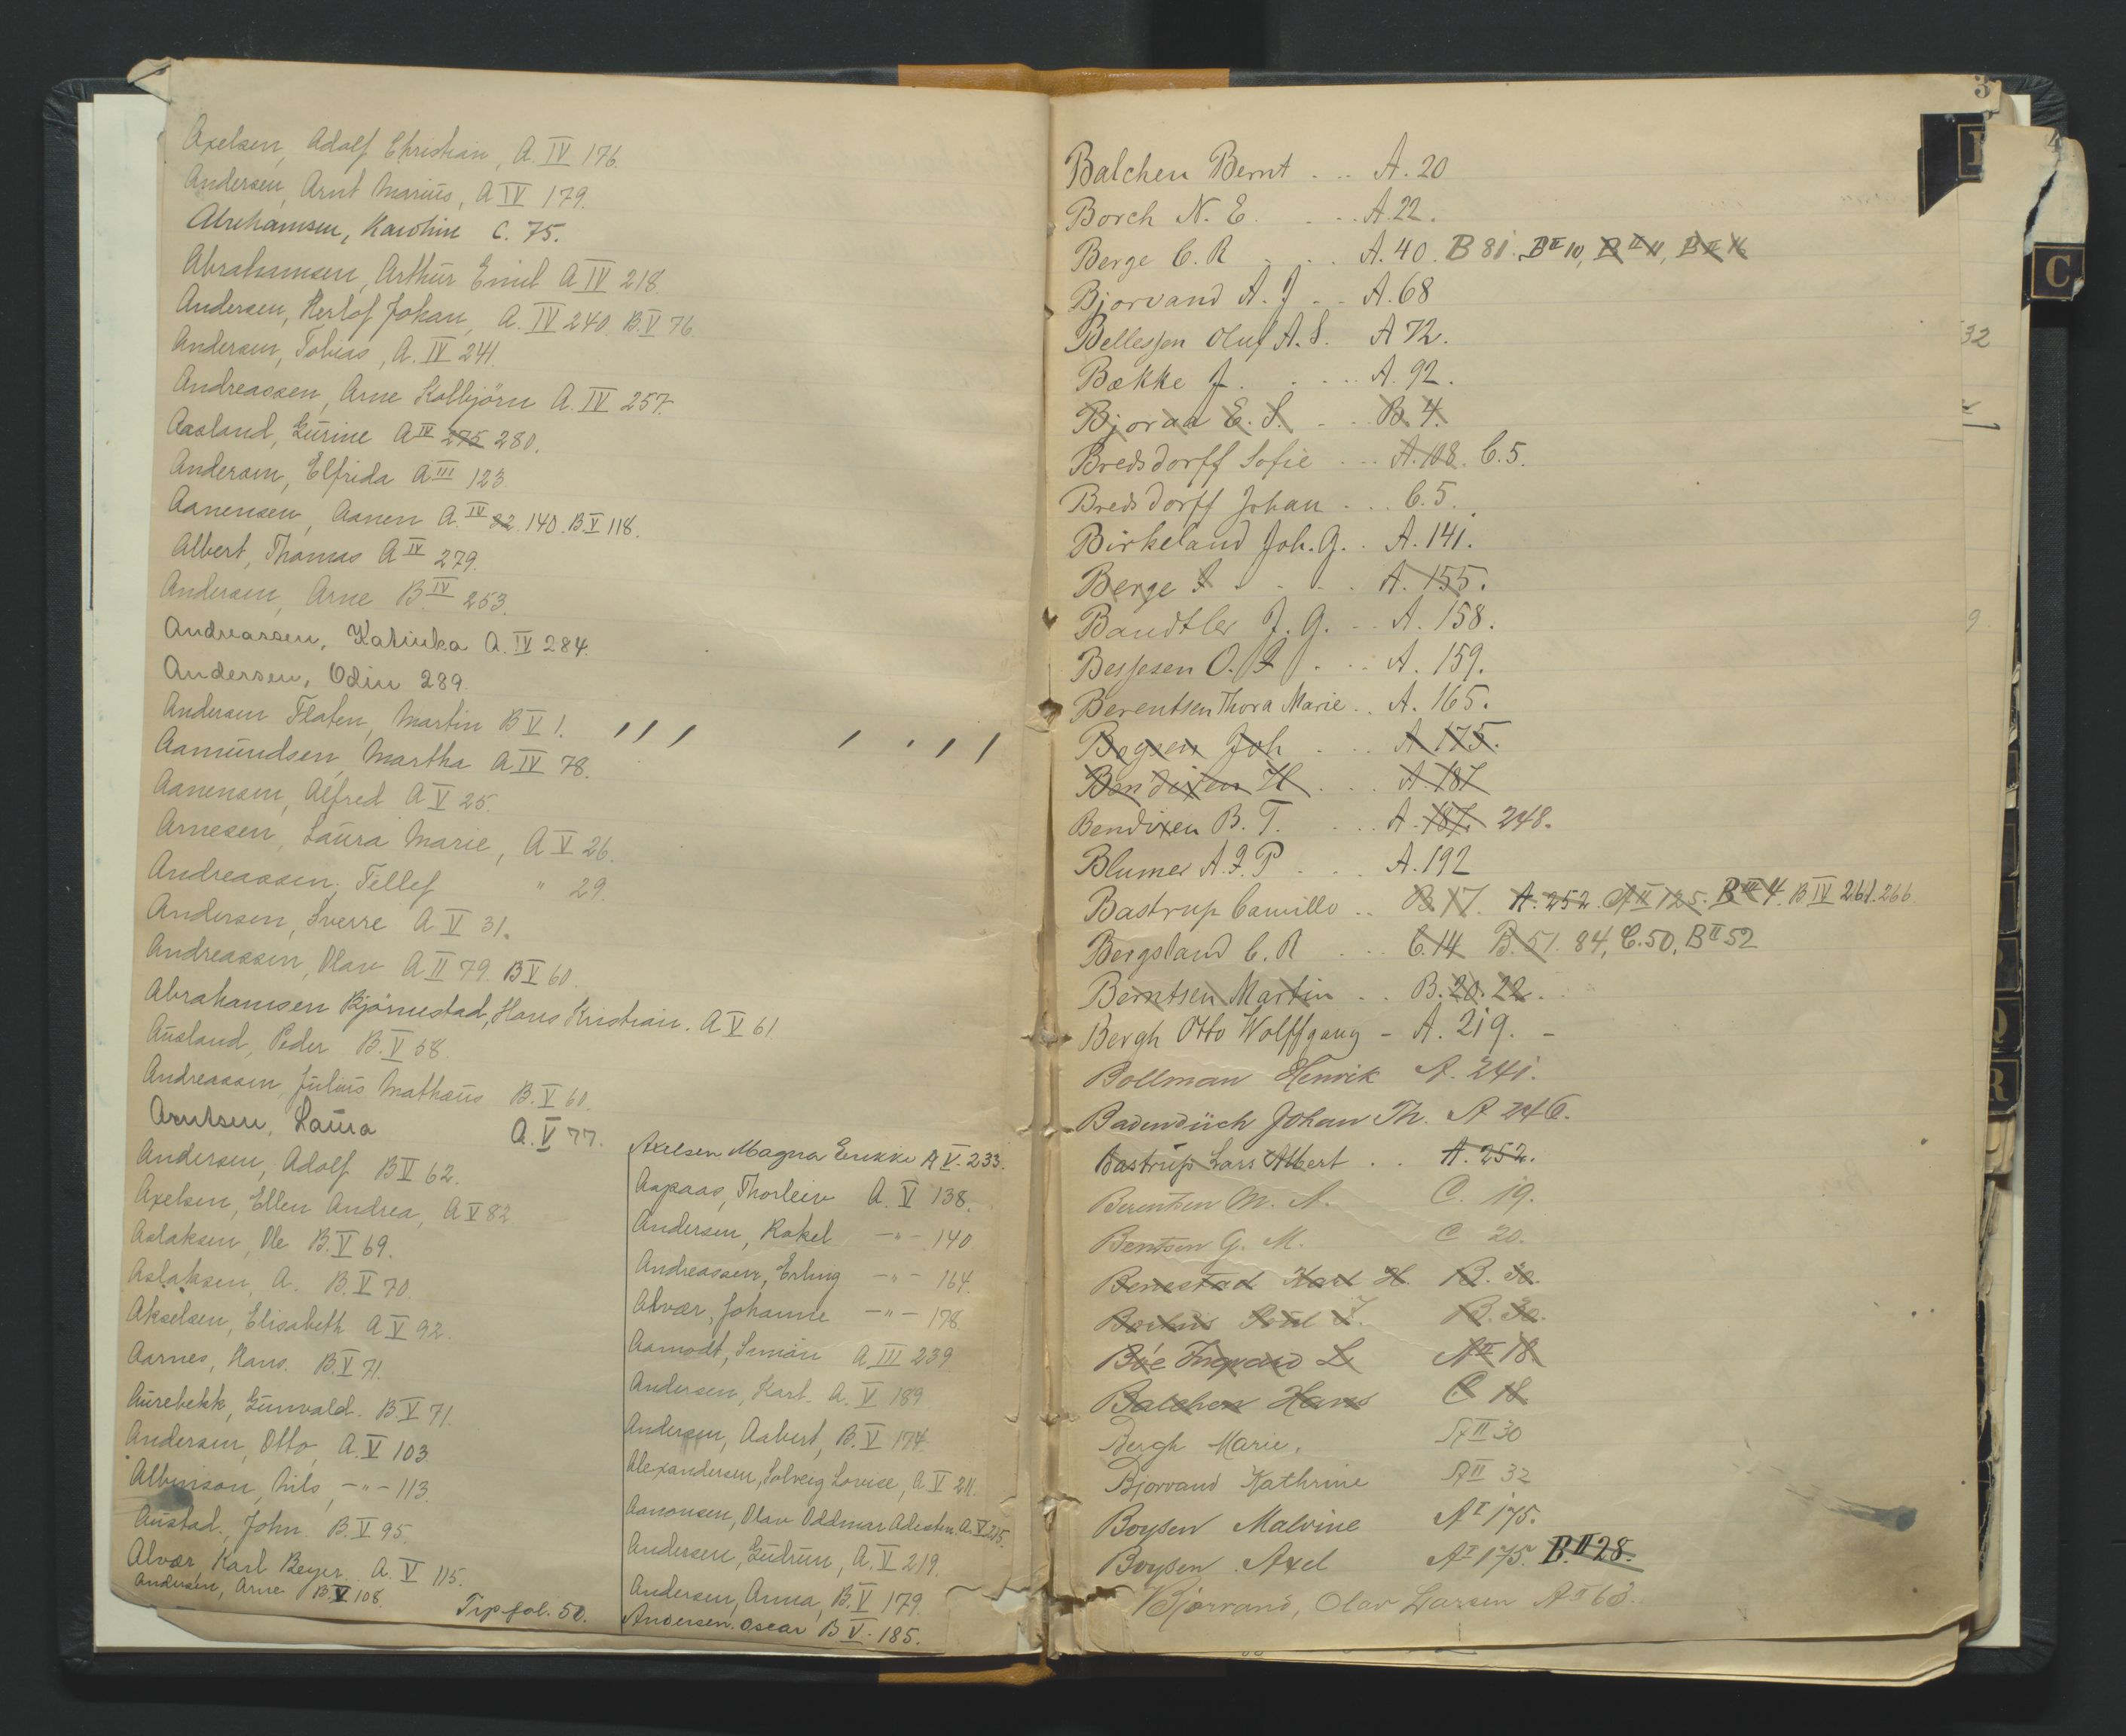 Axelsen, Adolf Christian, A. IV 176.
Andersen, Arnt Marius, A IV 179.
Abrahamsen, Karolin C. 75.
Abrahamsen, Arthur Emil A IV 218
Andersen, Herlof Johan, A. IV 240. B.V 76.
Andersen, Tobias, A. IV 241.
Andreassen, Arne Kolbjörn A. IV 257.
Aasland, Gurine A IV 275 280.
Andersen, Elfrida A III 123.
Aanensen, Aanen A. IV 82. 140. B V 118.
Albert, Thomas A IV 279.
Andersen, Arne B. IV 253.
Andreassen, Katinka A. IV 284.
Andersen, Odin 289.
Andersen Flaten, Martin B V 1.
Aamundsen, Martha A IV 78.
Aanensen, Alfred A V 25.
Arnesen, Laura Marie, A V 26.
Andreassen, Tellef " 29.
Andersen, Sverre A V 31.
Andreassen, Olav A II 79. B V 60.
Abrahamsen Bjørnestad, Hans Kristian. A V 61
Ausland, Peder B. V 58.
Andreassen, Julius Mathæus B. V 60.
Arntsen, Laura A. V 77.
Andersen, Adolf B V 62.
Axelsen, Ellen Andrea, A V 82
Aslaksen, Ole B. V 69.
Aslaksen, A. B. V 70.
Akselsen, Elisabeth A V 92.
Aarnes, Hans. B. V 71.
Aurebekk, Gunvald. B. V 71.
Andersen, Otto, A. V 103
Albinson, Nils, -"- 113.
Austad, John. B. V 95.
Alvær, Karl Beyer. A. V 115.
Andersen, Arne B V 108.
Trp fol. 50.
Axelsen Magna A V. 233.
Aapaas, Thorleiv A. V 138.
Andersen, Rakel -"- 140
Andreassen, Erling -"- 164.
Alvær, Johanne -"- 178
Aamodt, Simon A III 239
Andersen, Karl. A. V 189
Andersen, Asbert, B. V 174.
Alexandersen, Solveig Lovise, A V 211.
Aamonsen, Olav Oddmar A. V 215.
Andersen, Gudrun, A. V 219.
Andersen, Anna, B. V 179.
Andersen. Oscar B V. 185.
3
Balchen Bernt . .. A. 20
Borch N. E. . .. A. 22.
Berge C. R . . . A. 40. B 81. B II 10, B II 11, B II 16
Bjorvand A. J . .. A. 68
Bellessen Oluf A. S. A 72.
Bække J. . ... A. 92.
Bjoraa E. S. . .. B. 4.
Bredsdorff Sofie ... A. 108. C. 5.
Bredsdorff Johan ... C. 5.
Birkeland Joh. G. . A. 141.
Berge . . . . A. 155.
Bandtler J. G. .. A. 158.
Bessesen O. F . ... A. 159.
Berentsen Thora Marie .. A. 165.
Bogsen Joh . ... A 175.
Bendixen H . . . . A. 187
Bendixen B. T. . ... A. 187. 248.
Blumer A. F. P . . . . A. 192
Bastrup Camillo .. B 17. A. 252. A II 125. B III 4. B IV 261. 266
Bergsland C. R ... C. 14 B. 51. 84, C. 50, B II 52
Berntsen Martin .. B. 20. 22.
Bergh Otto Wolffgang - A. 219. -
Bollman Henrik A. 241.
Badendüch Johan Th. A 246.
Bastrup Lars Albert . . A. 252.
Berentsen M. A. C. 19.
Bentsen G. M. C 20.
Benestad Karl H. B. 30.
B. 30.
Böe Ingvard L A II 18.
Balchen Hans C 18.
Bergh Marie. A II 30
Bjorvand Kathrine A II 32
Boysen Malvine A I 175.
Boysen Axel A I 175. B. II 28.
Bjorvand, Olav Larsen A II 63.
4
C
32
9
Q
R